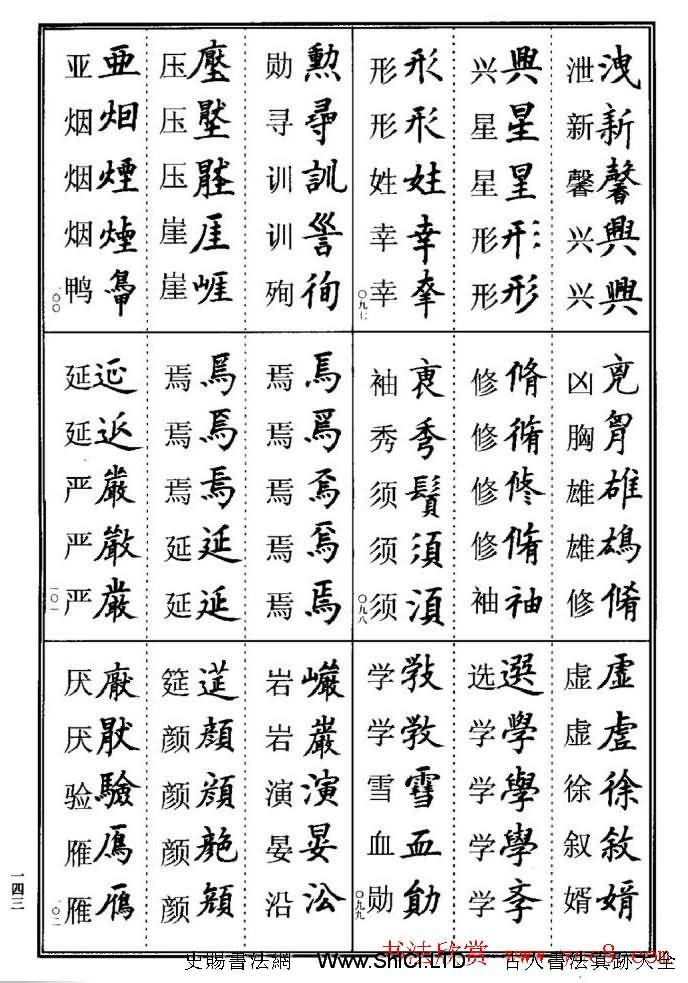 洩新馨興興
泄新馨兴兴
興星星形形
兴星星形形
形形姓幸
形形姓幸幸
〇九七
雄鴆脩
凶胸雄雄修
脩脩修脩袖
修修修修袖
秀鬚須須
袖秀须须须
〇九八
虛虛徐敘婿
虚虚徐叙婿
選學學學孝
选学学学学
斆教雪血勛
学学雪血勋
〇九九
勳尋訓徇
勋寻训训殉
壓壓崖崕
压压压崖崖
亞烟煙煙
亚烟烟烟鸭
一〇〇
焉焉焉焉焉
焉焉焉焉焉
焉焉焉延延
焉焉焉延延
延嚴嚴嚴
延延严严严
一〇一
巖巖演晏沿
岩岩演晏沿
筵顏顏顏
筵颜颜颜颜
厭厭驗鴈鴈
厌厌验雁雁
一〇二
一四三
书法欣赏
史賜書法網 www.ShiCi.LTD 古人書法真跡大全